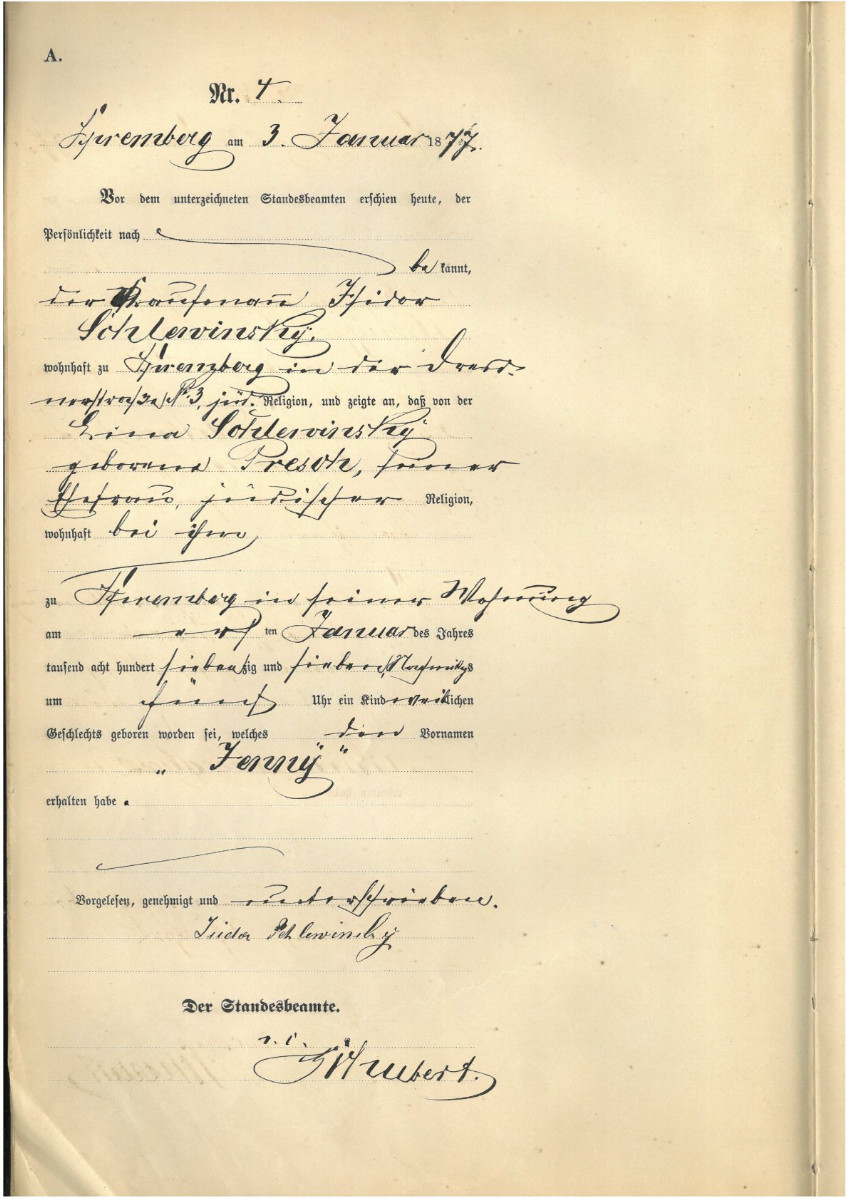 A.
Nr. 4.
Spremberg am 3. Januar 1877.
Vor dem unterzeichneten Standesbeamten erschien heute, der
Persönlichkeit nach
bekannt,
der Kaufmann Isidor
Schlewinsky,
wohnhaft zu Spremberg in der Dresd-
nerstraße No 3, jüd. Religion, und zeigte an, daß von der
Lina Schlewinsky
geborene Presch, seiner
Ehefrau, jüdischer Religion,
wohnhaft bei ihm,
zu Spremberg in seiner Wohnung
am ersten Januar des Jahres
tausend acht hundert siebenzig und sieben, Nachmittgs
um fünf Uhr ein Kind weiblichen
Geschlechts geboren worden sei, welches den Vornamen
„Jenny"
erhalten habe.
Vorgelesen, genehmigt und unterschrieben.
Schlewinsky
Der Standesbeamte.